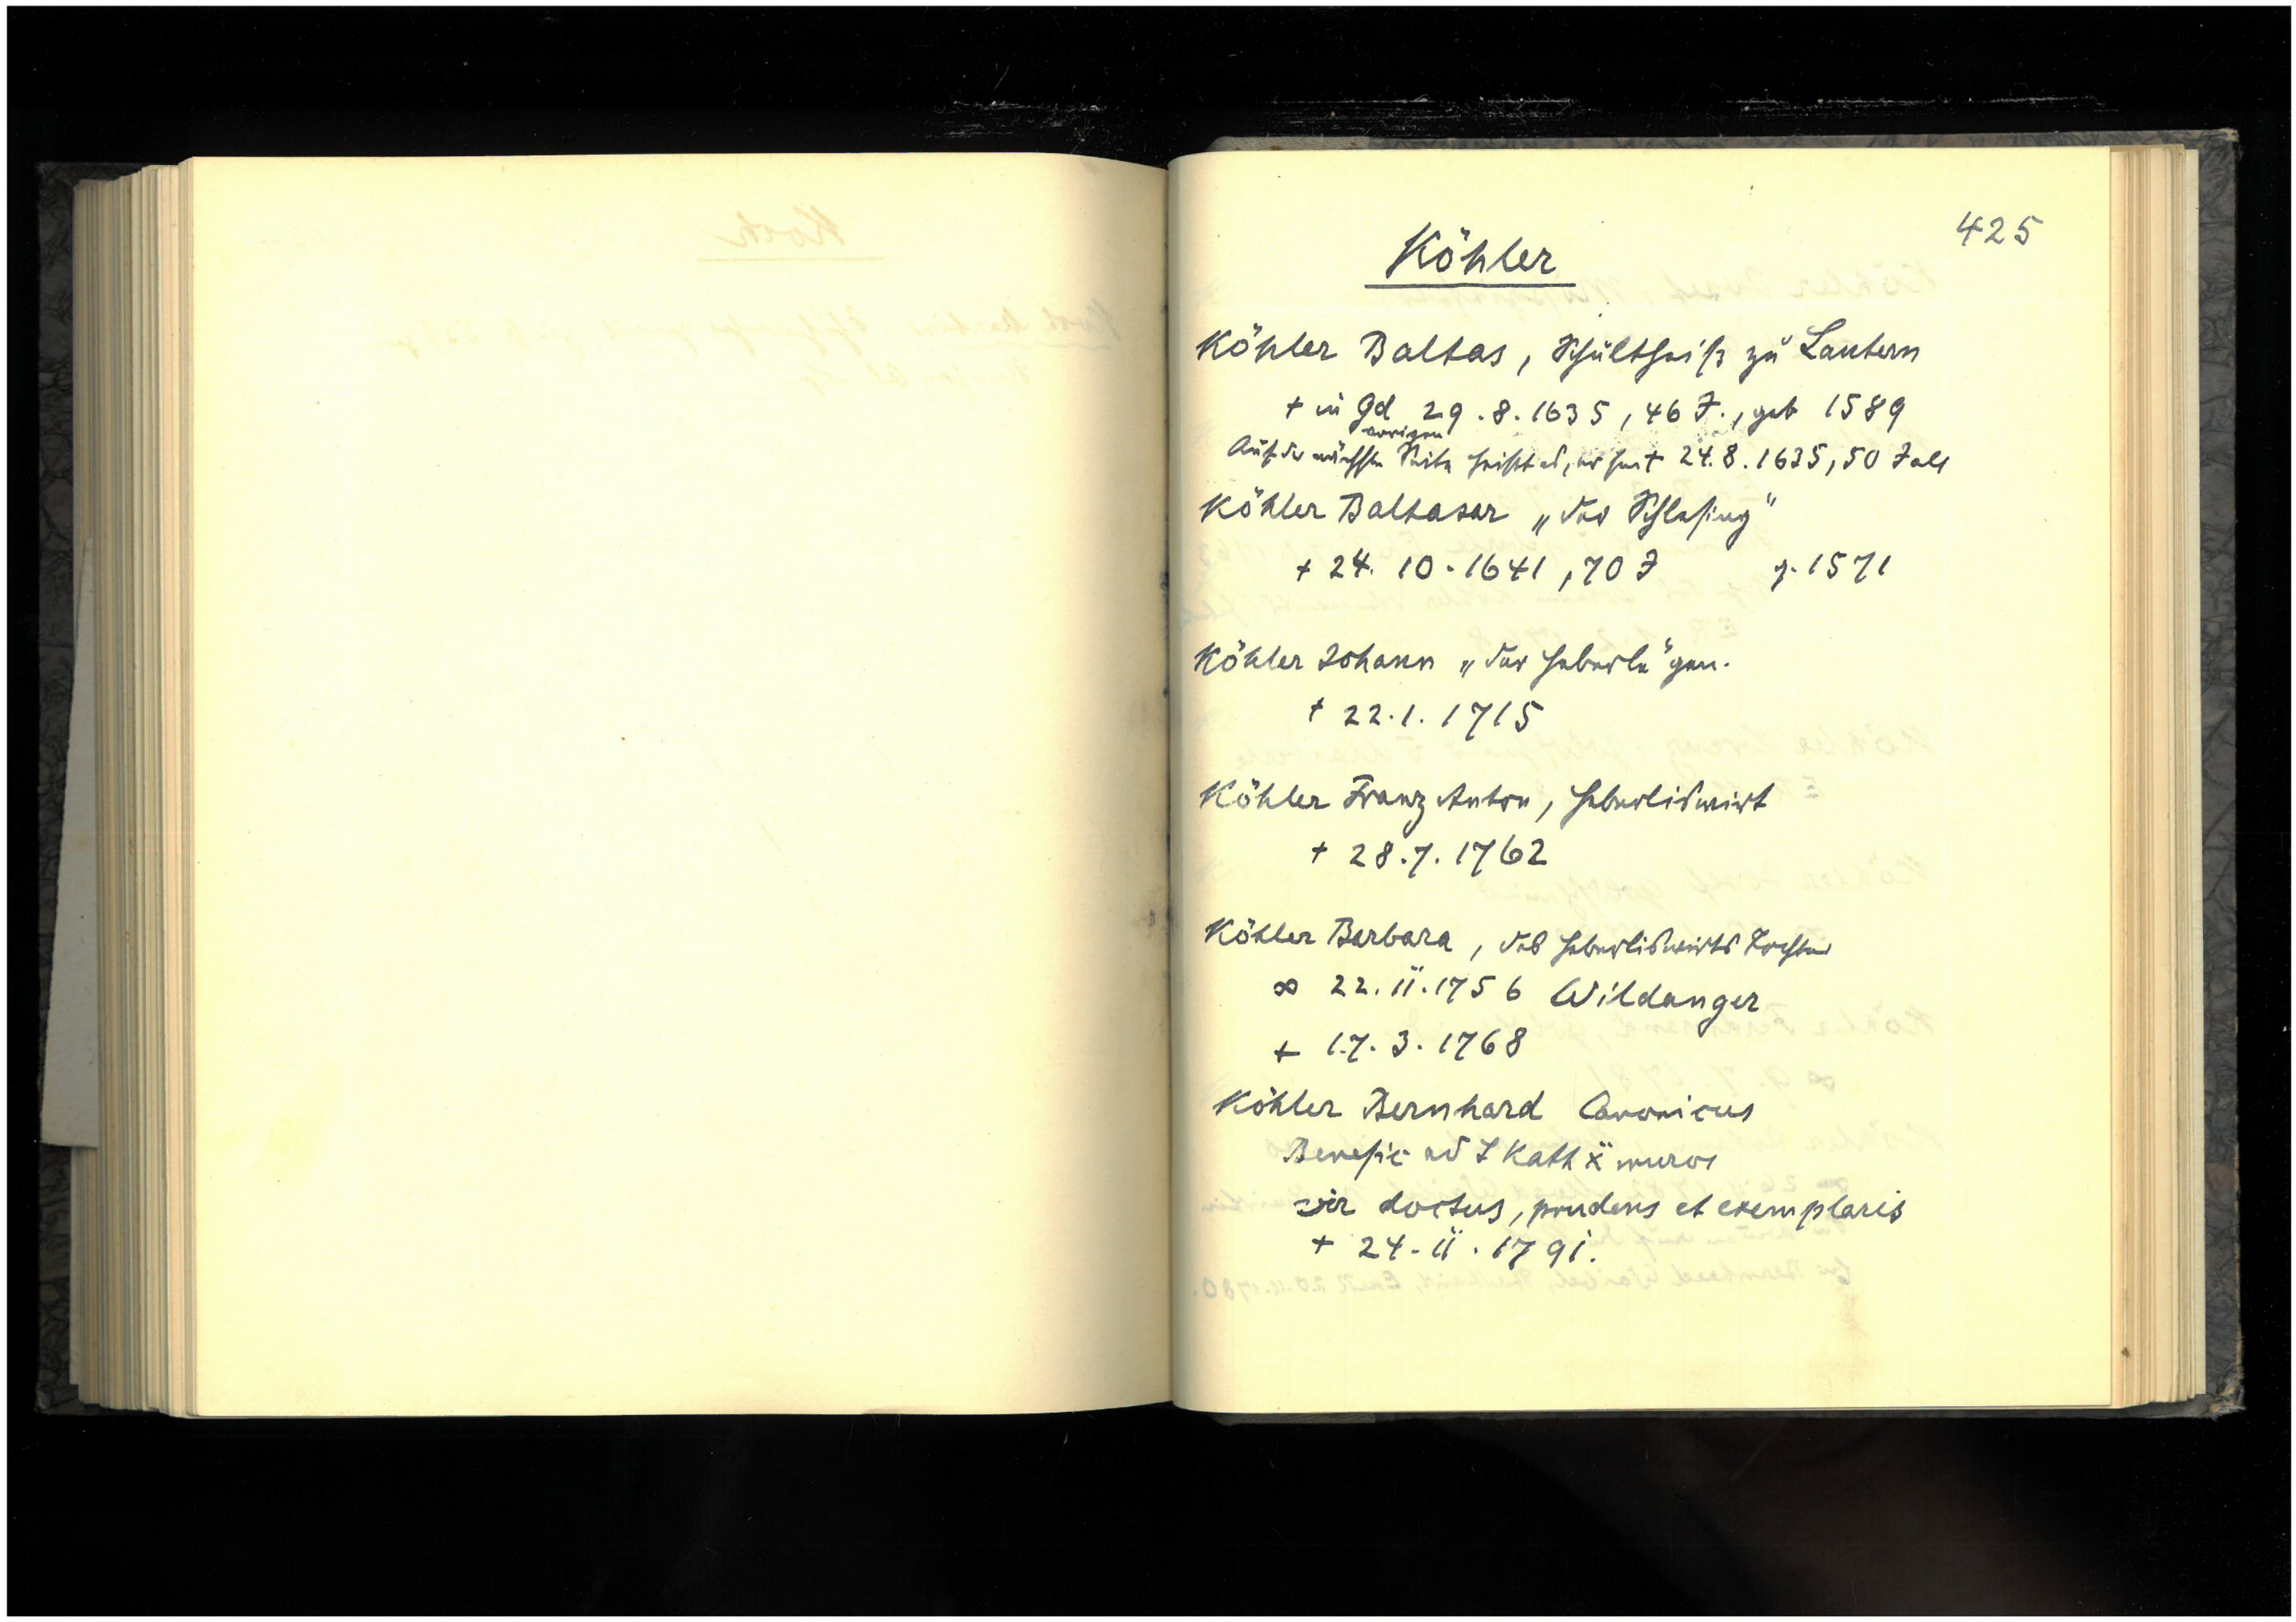 425
Köhler
Köhler Baltas, Schultheiß zu Lautern
+ in Gd 29.8.1635, 46 J., geb 1589
vorigen
Auf der nächsten Seite heißt es, er sei + 24.8.1635, 50 J alt
Köhler Baltasar „der
+ 24. 10. 1641, 70 J g. 1571
Köhler Johann „der Haberle" gen.
+ 22.1. 1715
Köhler Franz Anton, Haberliswirt
+ 28.7. 1762
Köhler Barbara, des Haberliswirts Tochter
∞ 22.11.1756 Wildanger
+ 17. 3. 1768
Köhler Bernhard Canonicus
Benefic ad S Kath muros
vir doctus, prudens et exemplaris
+ 24. 11. 1791.